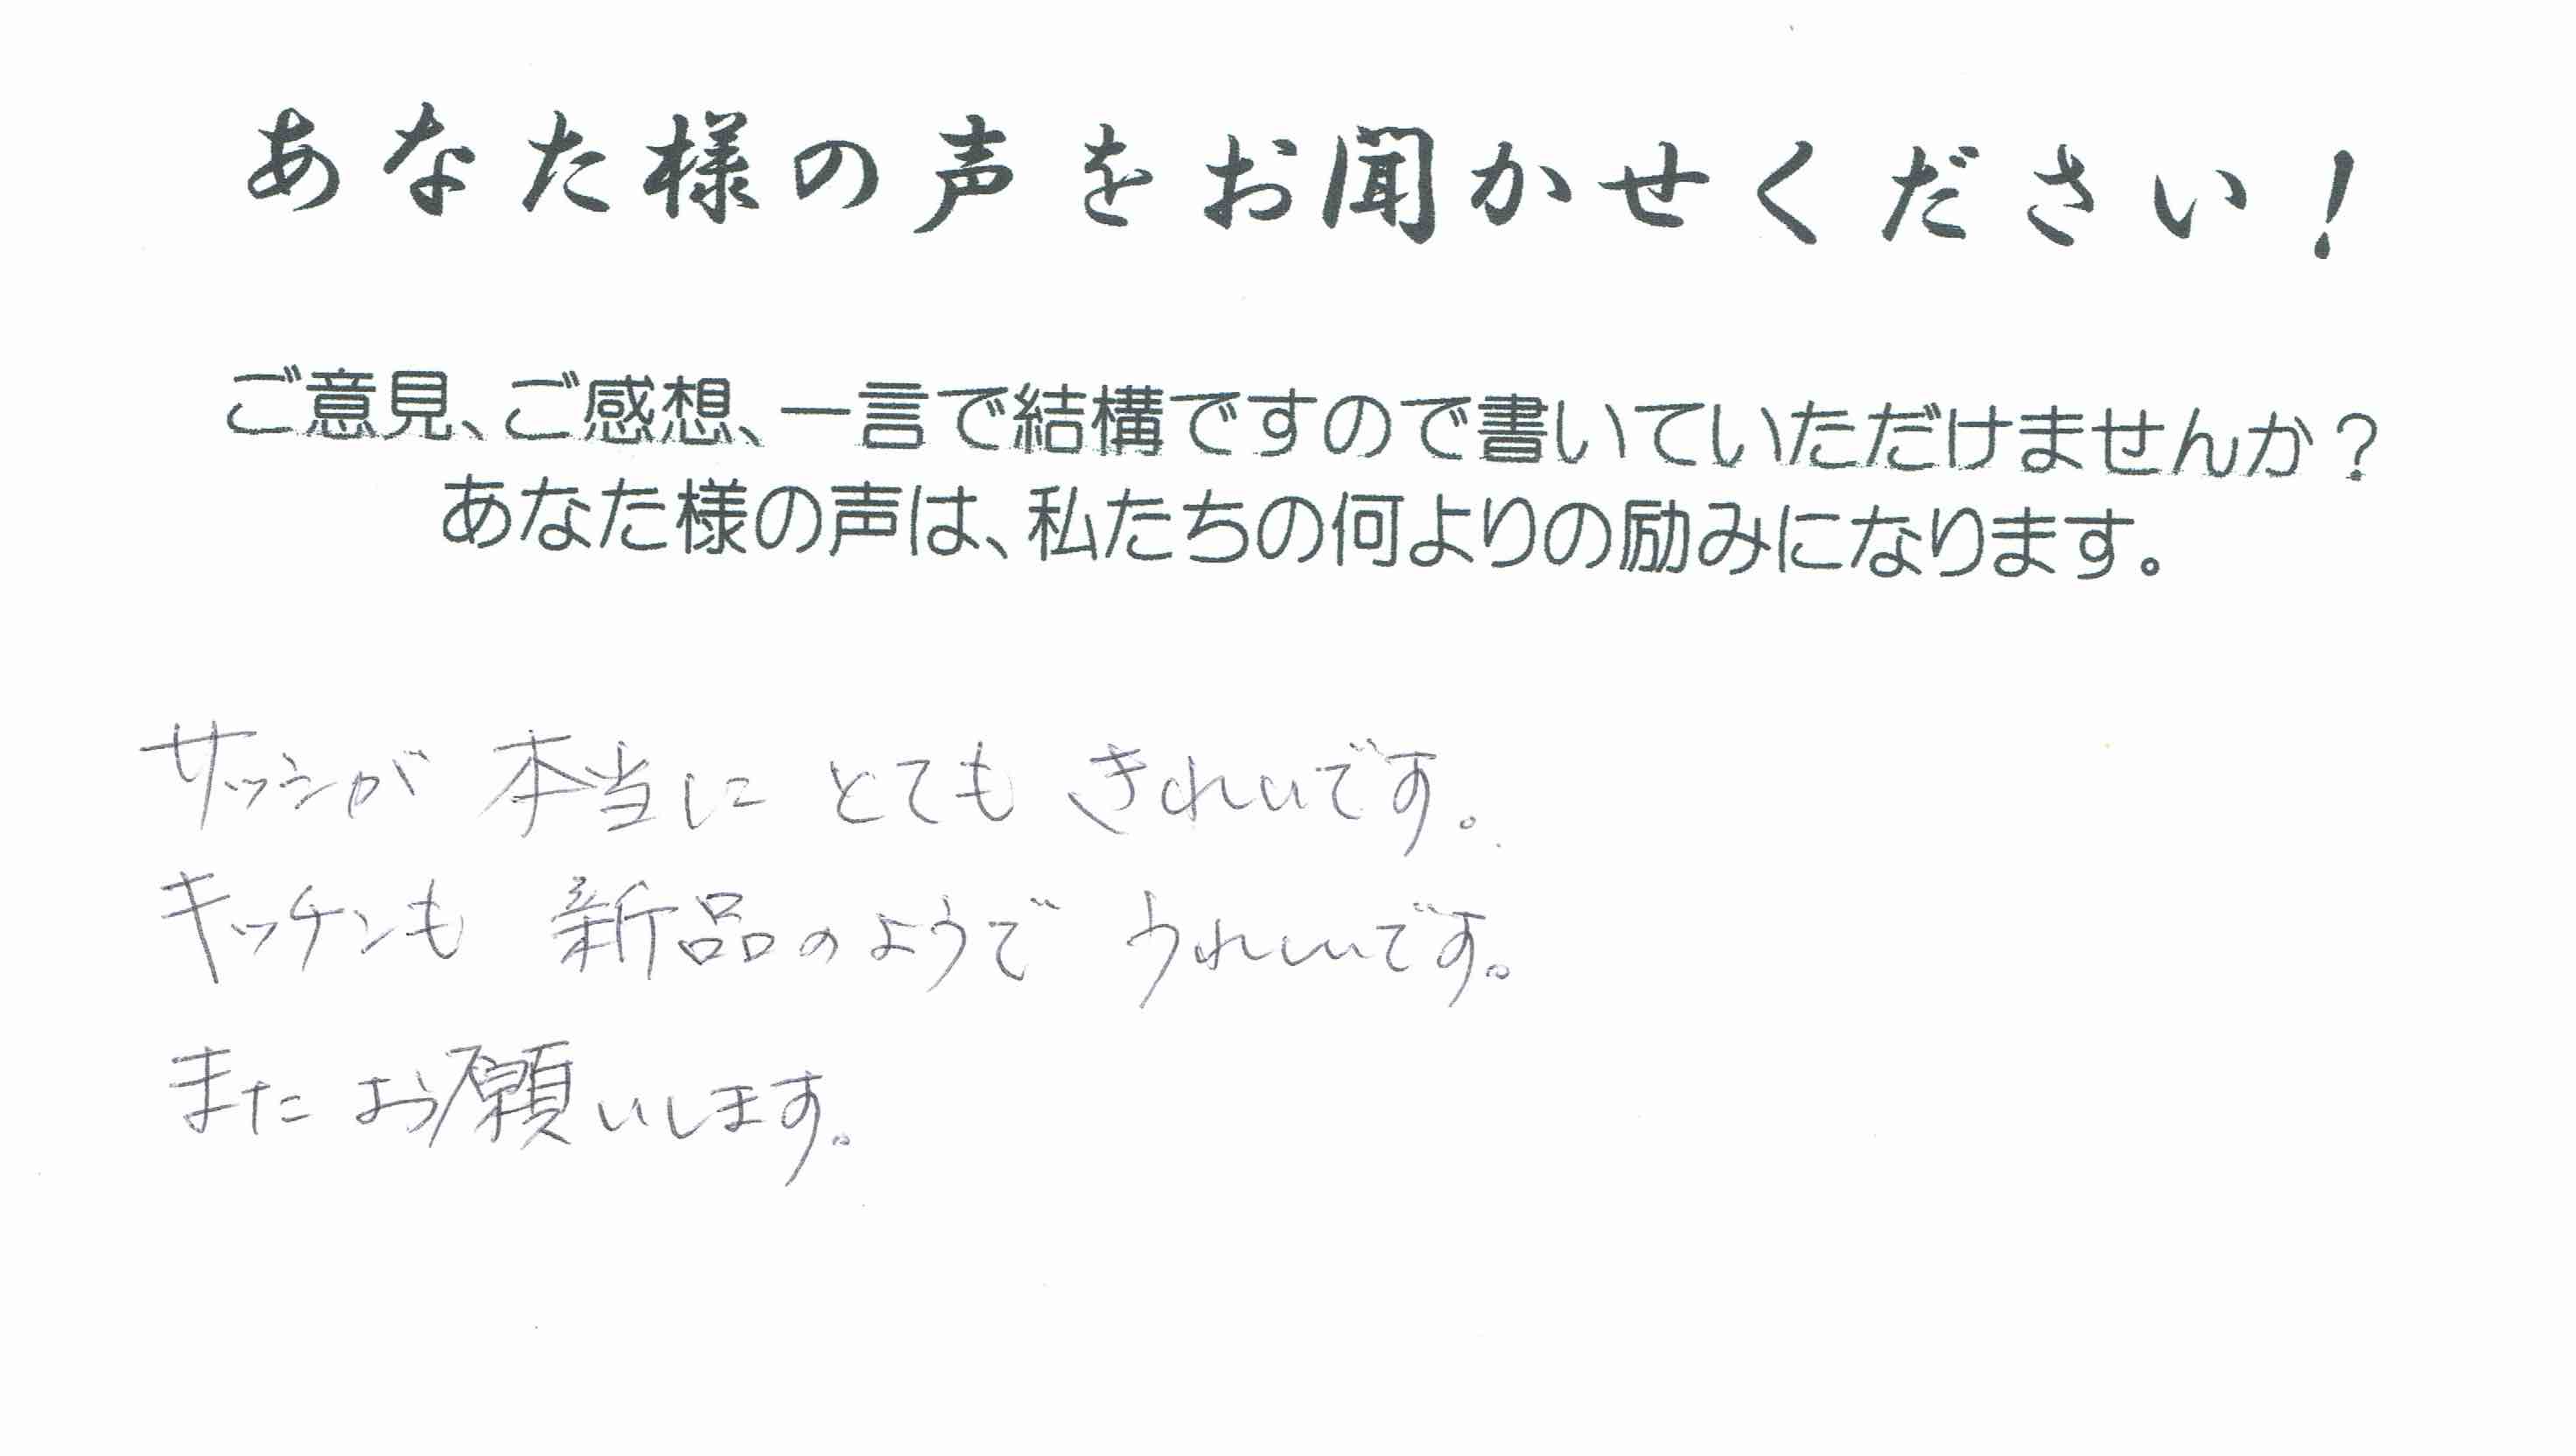 あなた様の声をお聞かせください！
ご意見、ご感想、一言で結構ですので書いていただけませんか？
あなた様の声は、私たちの何よりの励みになります。
サッシが 本当に とても きれいです。
キッチンも 新品のようで うれしいです。
また お願いします。